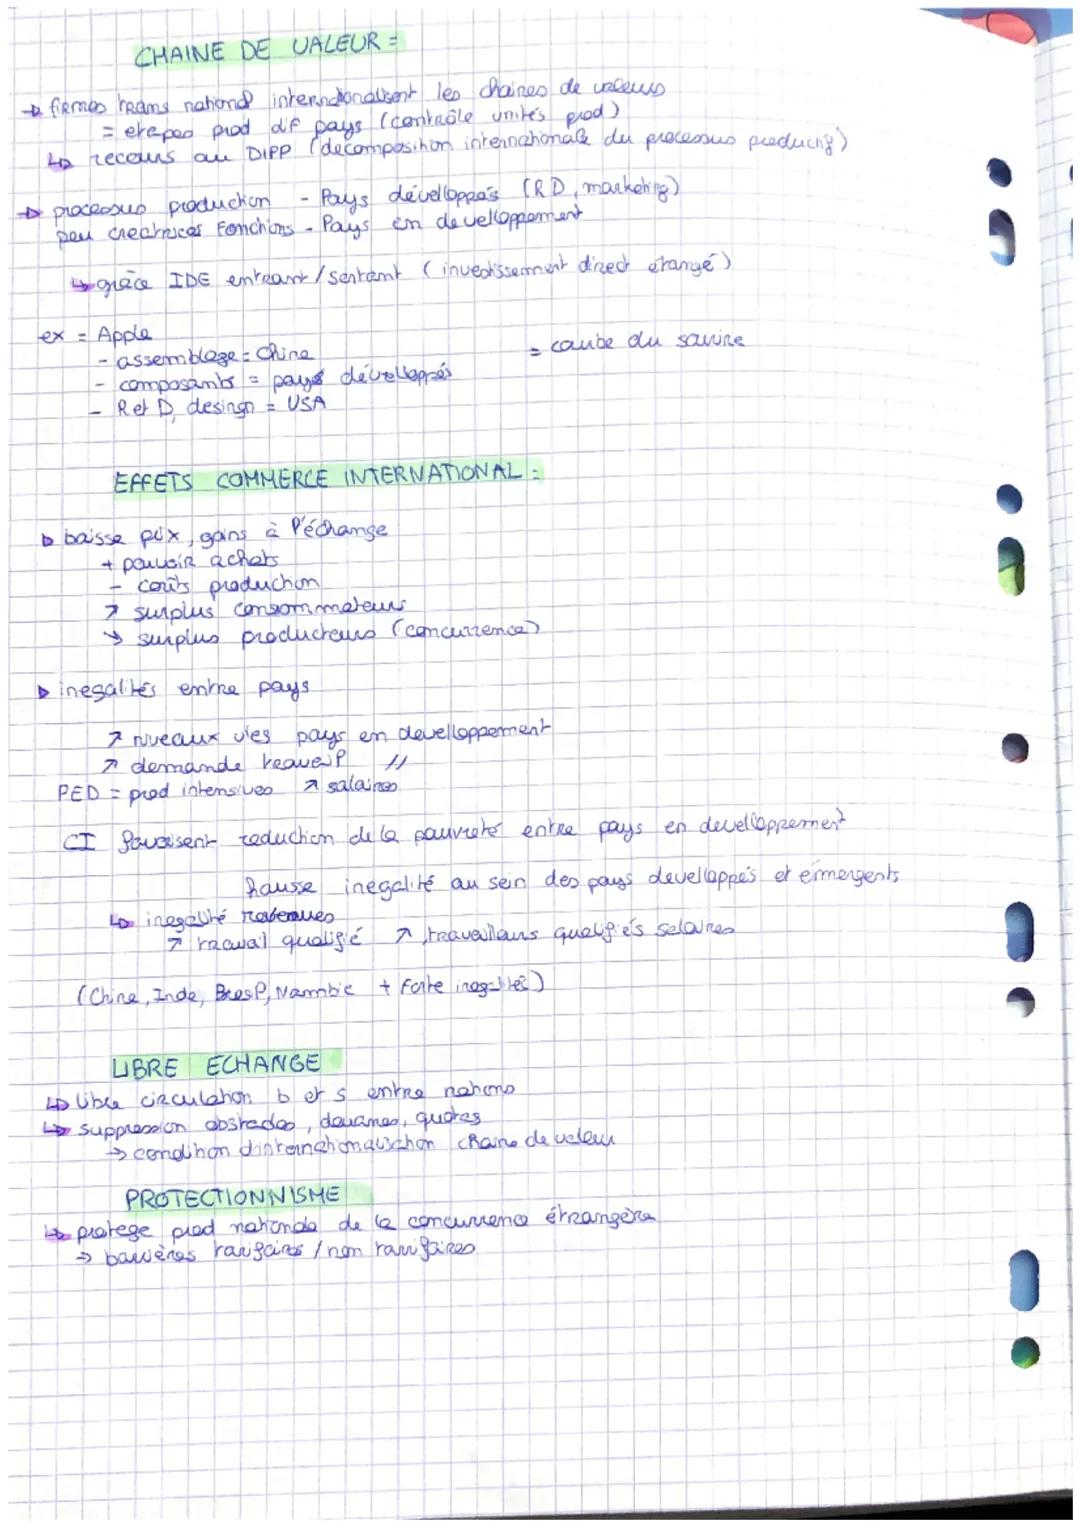 CHAINE DE VALEUR =
→ firmes trans national internationalisent les chaines de valeurs
= etapes prod dif pays (contrôle unités prod)
↳ recours au DIPP (décomposition internationale du processus productif)
→ processus production - Pays développés (RD, marketing)
peu créatrices Fonctions - Pays en developpement
↳ grâce IDE entrant/sortant (investissement direct étrangé)
ex = Apple
- assemblage = Chine
= courbe du sourire
- composants = pays dévelloppés
- R et D, desingn = USA
EFFETS COMMERCE INTERNATIONAL :
▷ baisse prix, gains à l'échange
+ pouvoir achats
- coûts production
↗ surplus consommateurs
↘ surplus producteurs (concurrence)
▷ inegalités entre pays
↗ niveaux vies pays en devellopement
↗ demande travail //
PED = prod intensives ↗ salaires
CI favorisent reduction de la pauvreté entre pays en devellopprement
hausse inegalité au sein des pays devellappés et émergents
↳ inegalité revenues
↗ travail qualifié ↗ travailleurs qualifiés salaires
(Chine, Inde, Bresil, Namibie + forte inegalités)
LIBRE ECHANGE
↳ libre circulation b et s entre nations
↳ suppression obstacles, douanes, quotas
→ condition d'internationalisation chaine de valeur
PROTECTIONNISME
↳ protege prod nationale de la concurrence étrangère
→ barrières tarifaires / non tarrifaires